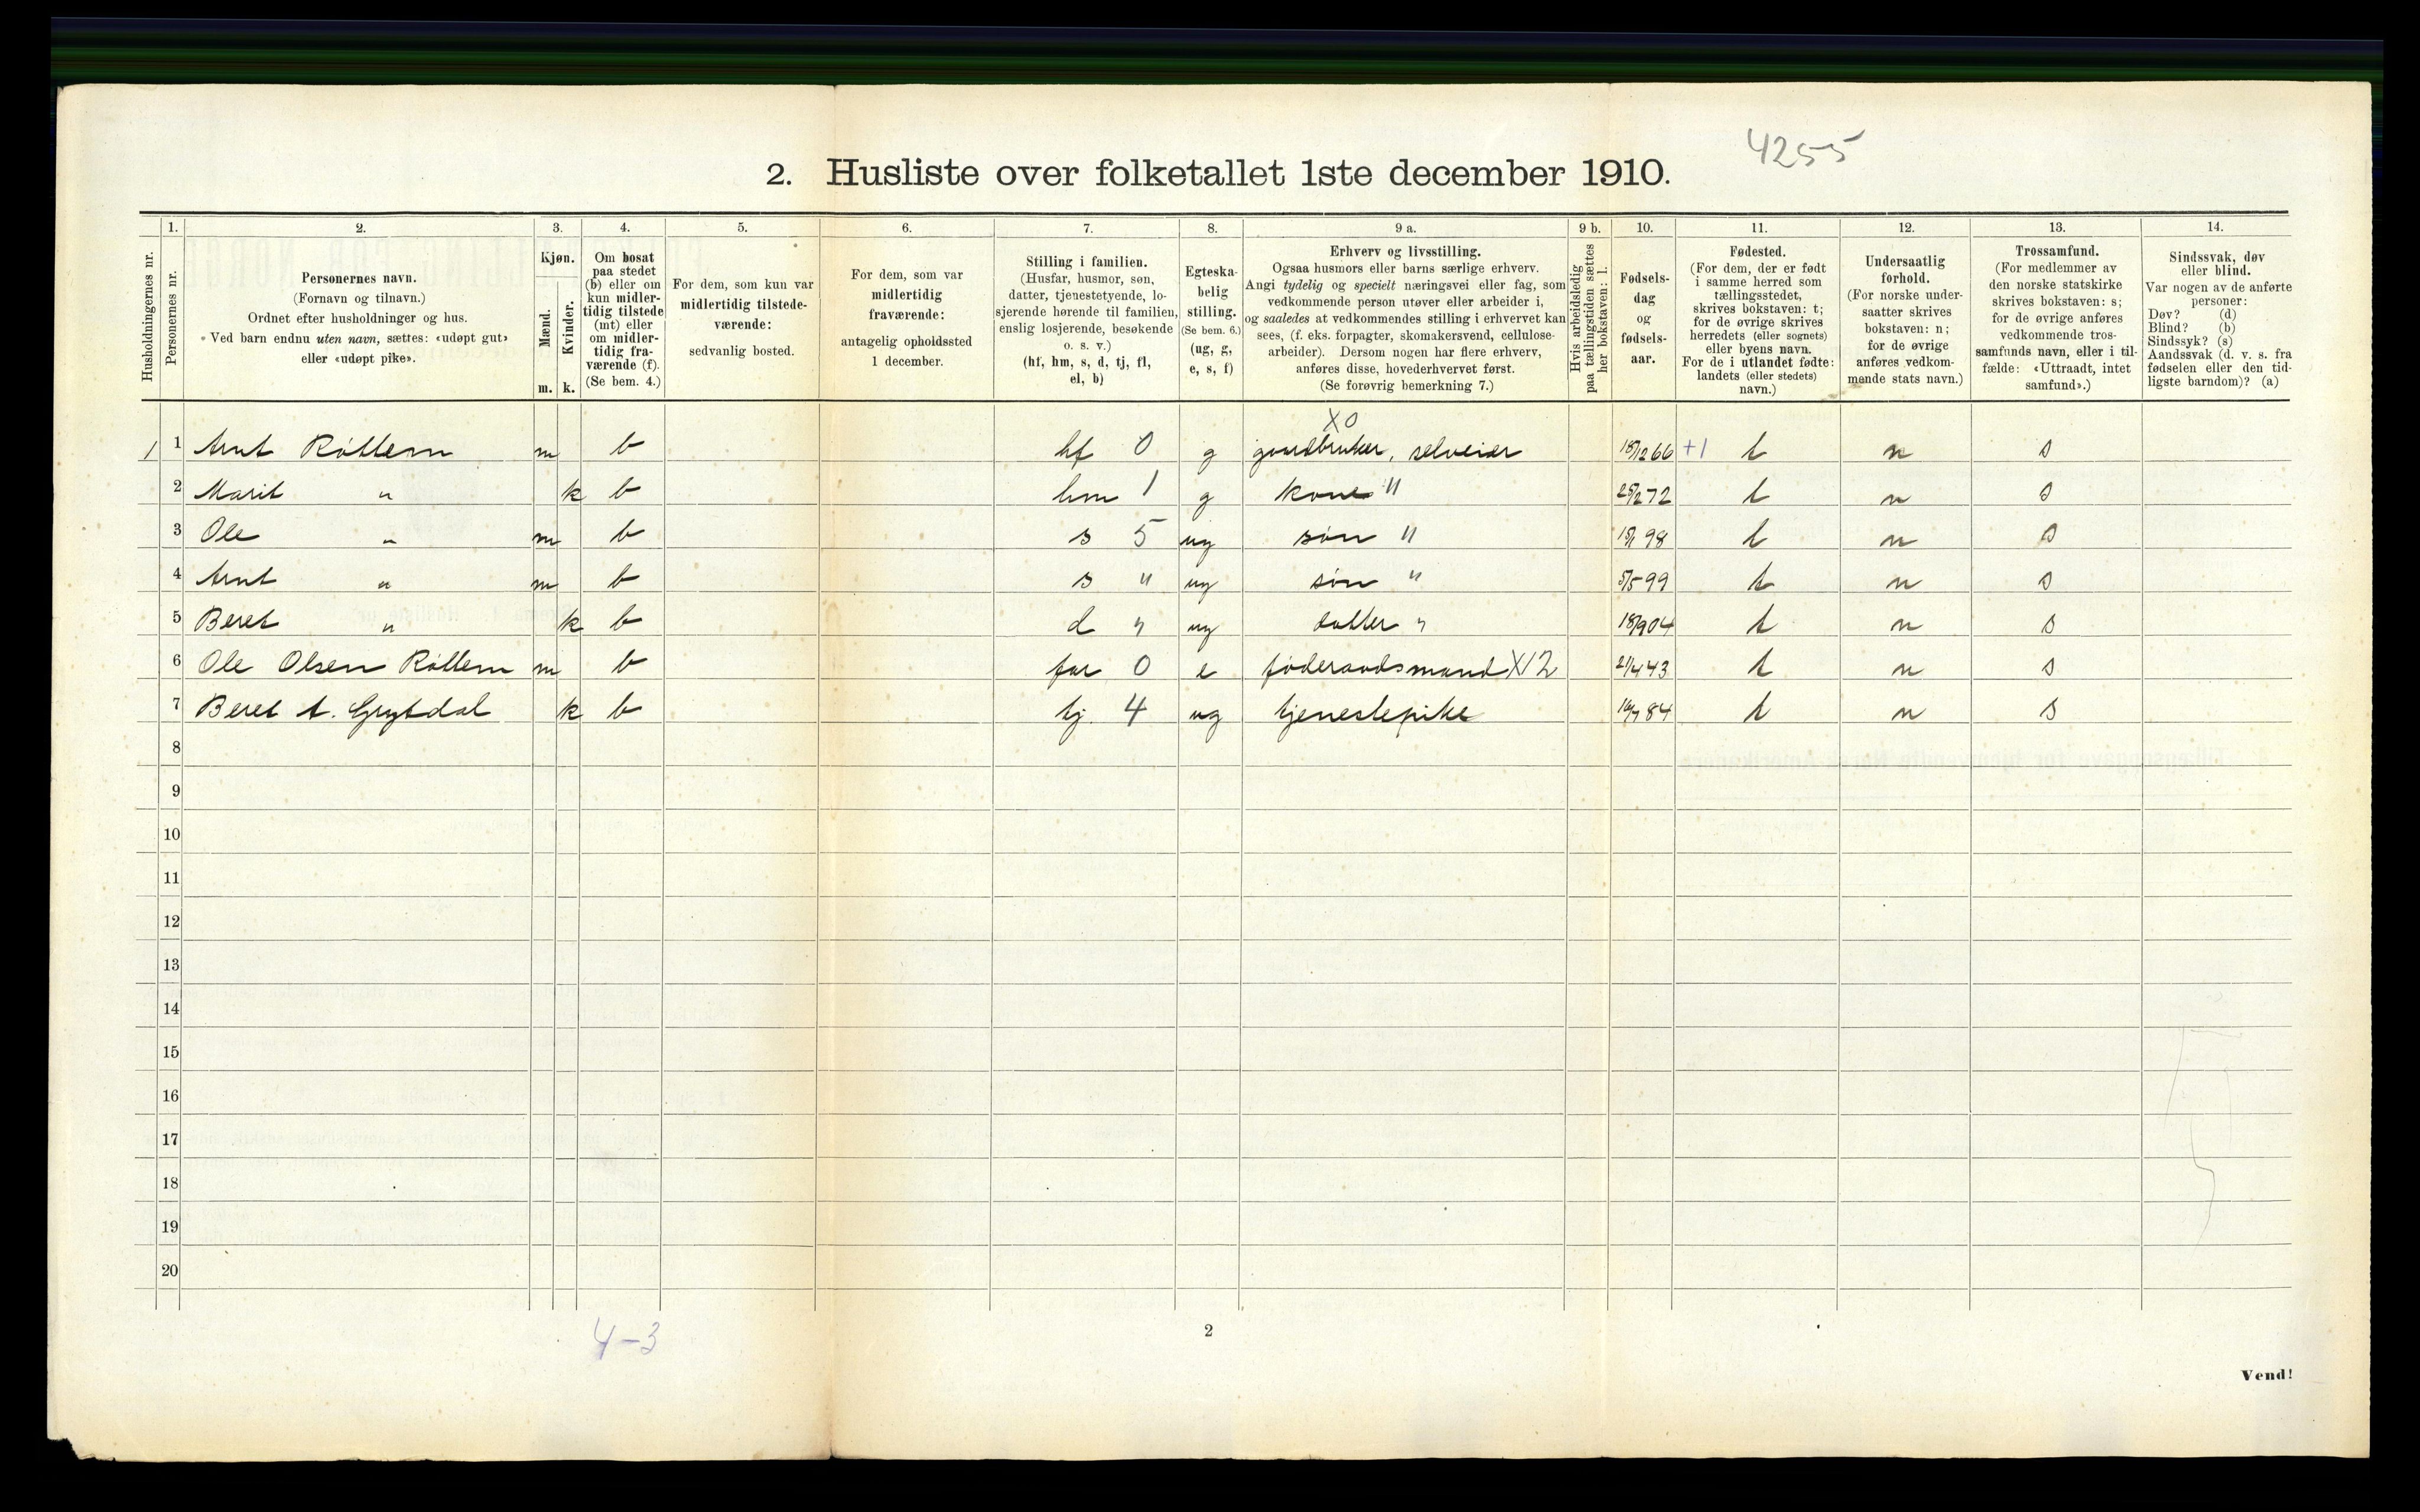 4255
2. Husliste over folketallet 1ste december 1910.
Husholdningernes nr.
1.
Personernes nr.
2.
Personernes navn.
(Fornavn og tilnavn.)
Ordnet efter husholdninger og hus.
Ved barn endnu uten navn, sættes: «udøpt gut»
eller «udøpt pike».
3.
Kjøn.
Mænd.
Kvinder.
m. k.
4.
Om bosat
paa stedet
(b) eller om
kun midler-
tidig tilstede
(mt) eller
om midler-
tidig fra-
værende (f).
(Se bem. 4.)
5.
For dem, som kun var
midlertidig tilstede-
værende:
sedvanlig bosted.
6.
For dem, som var
midlertidig
fraværende:
antagelig opholdssted
1 december.
7.
Stilling i familien.
(Husfar, husmor, søn,
datter, tjenestetyende, lo-
sjerende hørende til familien,
enslig losjerende, besøkende
o. s. v.)
(hf, hm, s, d, tj, fl,
el, b)
8.
Egteska-
belig
stilling.
(Se bem. 6.)
(ug, g,
e, s, f)
9 a.
Erhverv og livsstilling.
Ogsaa husmors eller barns særlige erhverv.
Angi tydelig og specielt næringsvei eller fag, som
vedkommende person utøver eller arbeider i,
og saaledes at vedkommendes stilling i erhvervet kan
sees, (f. eks. forpagter, skomakersvend, cellulose-
arbeider). Dersom nogen har flere erhverv,
anføres disse, hovederhvervet først.
(Se forøvrig bemerkning 7.)
9 b.
Hvis arbeidsledig
paa tællingstiden sættes
her bokstaven: l.
10.
Fødsels-
dag
og
fødsels-
aar.
11.
Fødested.
(For dem, der er født
i samme herred som
tællingsstedet,
skrives bokstaven: t;
for de øvrige skrives
herredets (eller sognets)
eller byens navn.
For de i utlandet fødte:
landets (eller stedets)
navn.)
12.
Undersaatlig
forhold.
(For norske under-
saatter skrives
bokstaven: n;
for de øvrige
anføres vedkom-
mende stats navn.)
13.
Trossamfund.
(For medlemmer av
den norske statskirke
skrives bokstaven: s;
for de øvrige anføres
vedkommende tros-
samfunds navn, eller i til-
fælde: «Uttraadt, intet
samfund».)
14.
Sindssvak, døv
eller blind.
Var nogen av de anførte
personer:
Døv? (d)
Blind? (b)
Sindssyk? (s)
Aandssvak (d. v. s. fra
fødselen eller den tid-
ligste barndom)? (a)
X0
1 1 Arnt Röttem m b hf 0 g gaardbruker, selveier 18/12 66 +1 t n s
2 Marit " k b hm 1 g kone " 25/2 72 t n s
3 Ole " m b s 5 ug søn " 98 t n s
4 Arnt " m b s " ug søn " 5/5 99 t n s
5 Beret " k b d " ug datter " 18/9 04 t n s
6 Ole Olsen Röttem m b far 0 e föderaadsmand X12 21/4 43 t n s
7 Beret A. Grytdal k b tj 4 ug tjenestepike 16/7 84 t n s
8
9
10
11
12
13
14
15
16
17
18
19
20
4-3
2
Vend!